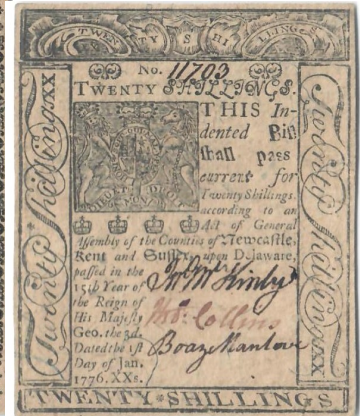 TWENTY SHILLINGS
No. 11703
TWENTY SHILLINGS.
THIS In-
dented Bill
shall pass
current for
Twenty Shillings,
according to an
Act of General
Assembly of the Counties of Newcastle,
Kent and Sussex, upon Delaware,
passed in the
15th Year of
the Reign of
His Majesty
Geo. the 3d.
Dated the 1st
Day of Jan.
1776. XXs.
Jno. McKinly
Thos. Collins
Boaz Manlove
Twenty ShillingsXX
Twenty ShillingsXX
TWENTY SHILLINGS